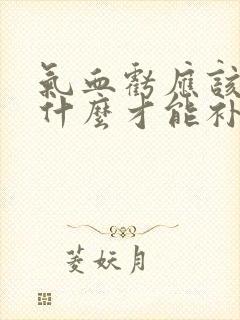 氣血虧應該
什麼才能补
菱妖月